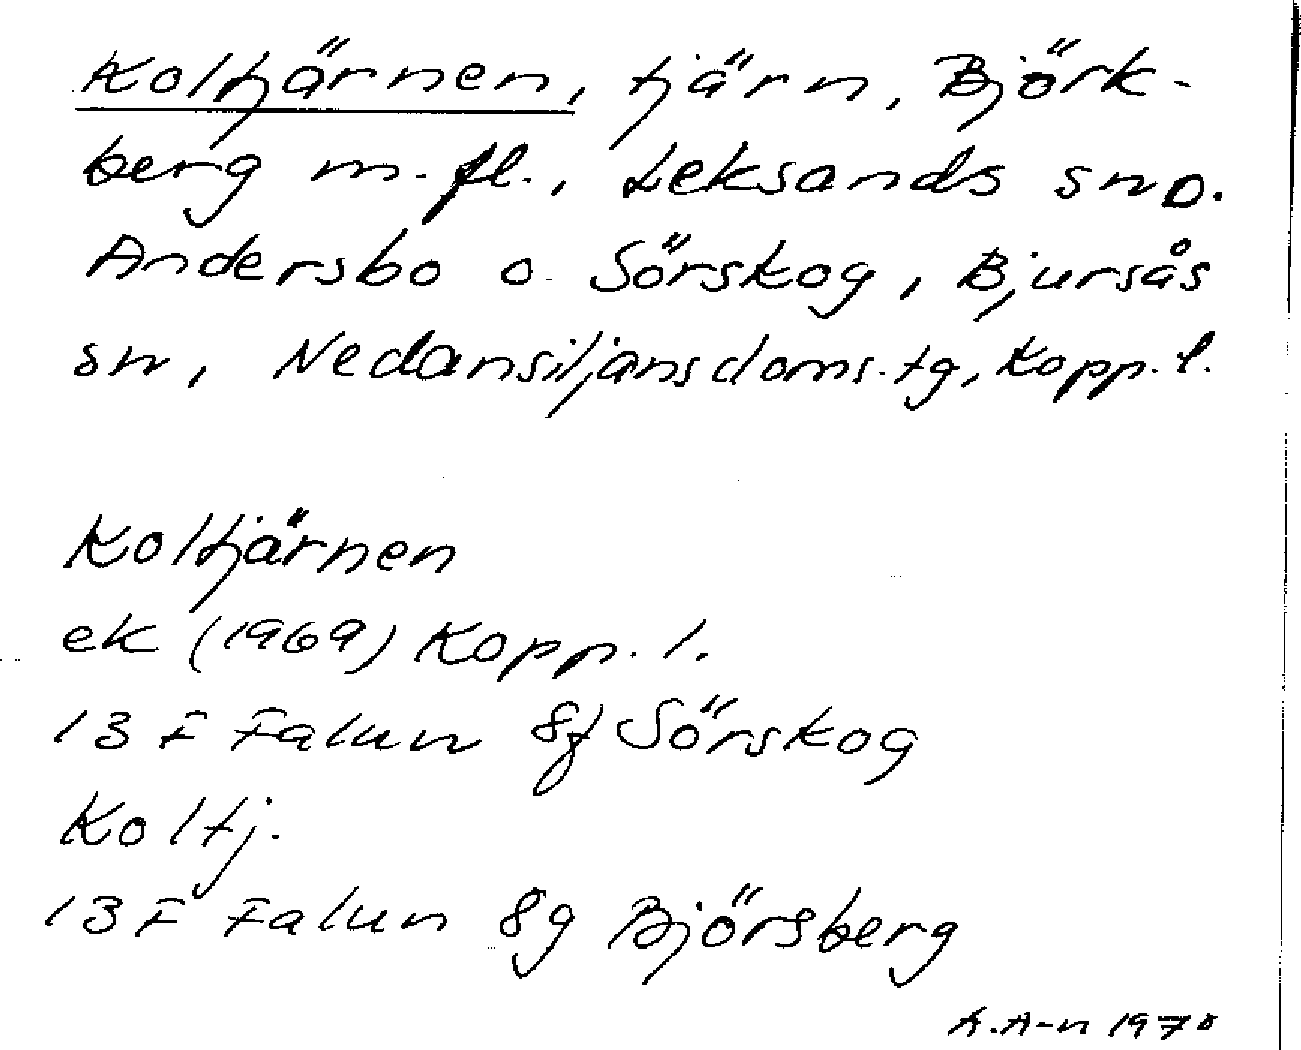 Koltjärnen, tjärn, Björk-
berg m.fl., Leksands sn o.
Andersbo o. Sörskog, Bjursås
sn, Nedansiljans doms.tg, Kopp.l.
Koltjärnen
ek (1969) Kopp.l.
13 F Falun 8f Sörskog
Koltj.
13 F Falun 8g Björsberg
A.A-n 1970